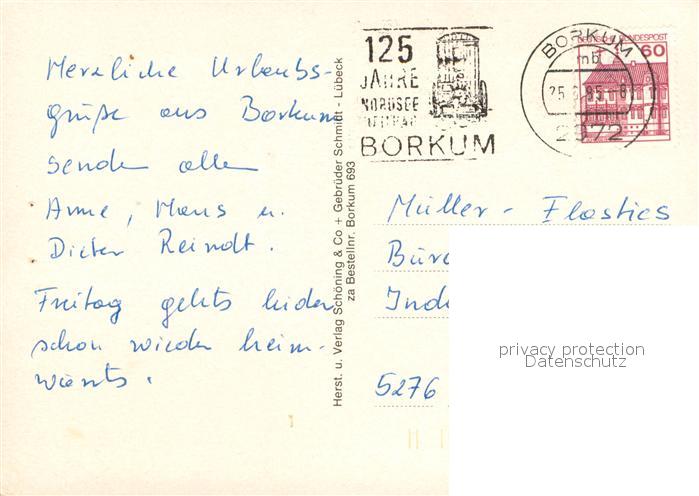 Herzliche Urlaubs-
grüße aus Borkum
senden allen
Anne, Hans u.
Dieter Reindt.
Freitag gehts leider
schon wieder heim-
wärts.
Herst. u. Verlag Schöning & Co + Gebrüder Schmidt - Lübeck
za Bestellnr. Borkum 693
125
JAHRE
NORDSEE
HEILBAD
BORKUM
BORKUM
mb
2972
DEUTSCHE BUNDESPOST
60
Müller - Elastics
Büro
Inde
5276
privacy protection
Datenschutz